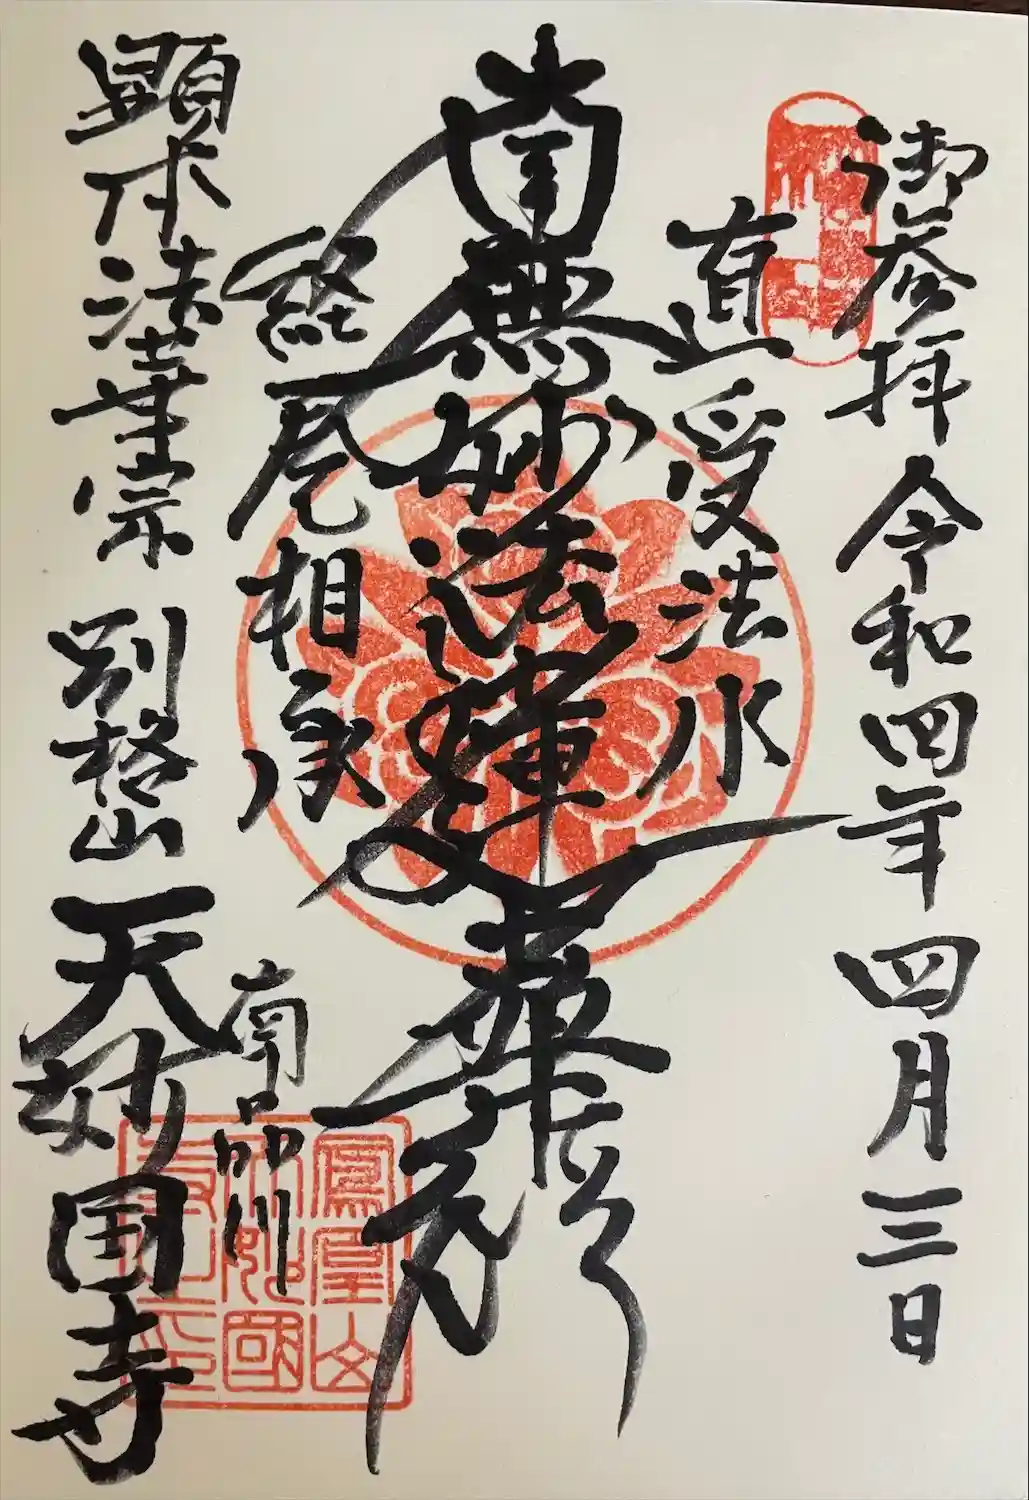 御参拝 令和四年 四月三日
直受法水
南無妙法蓮華経
経巻相承
南品川
顕本法華宗 別格山 天妙国寺
鳳凰山
天妙國
寺之印